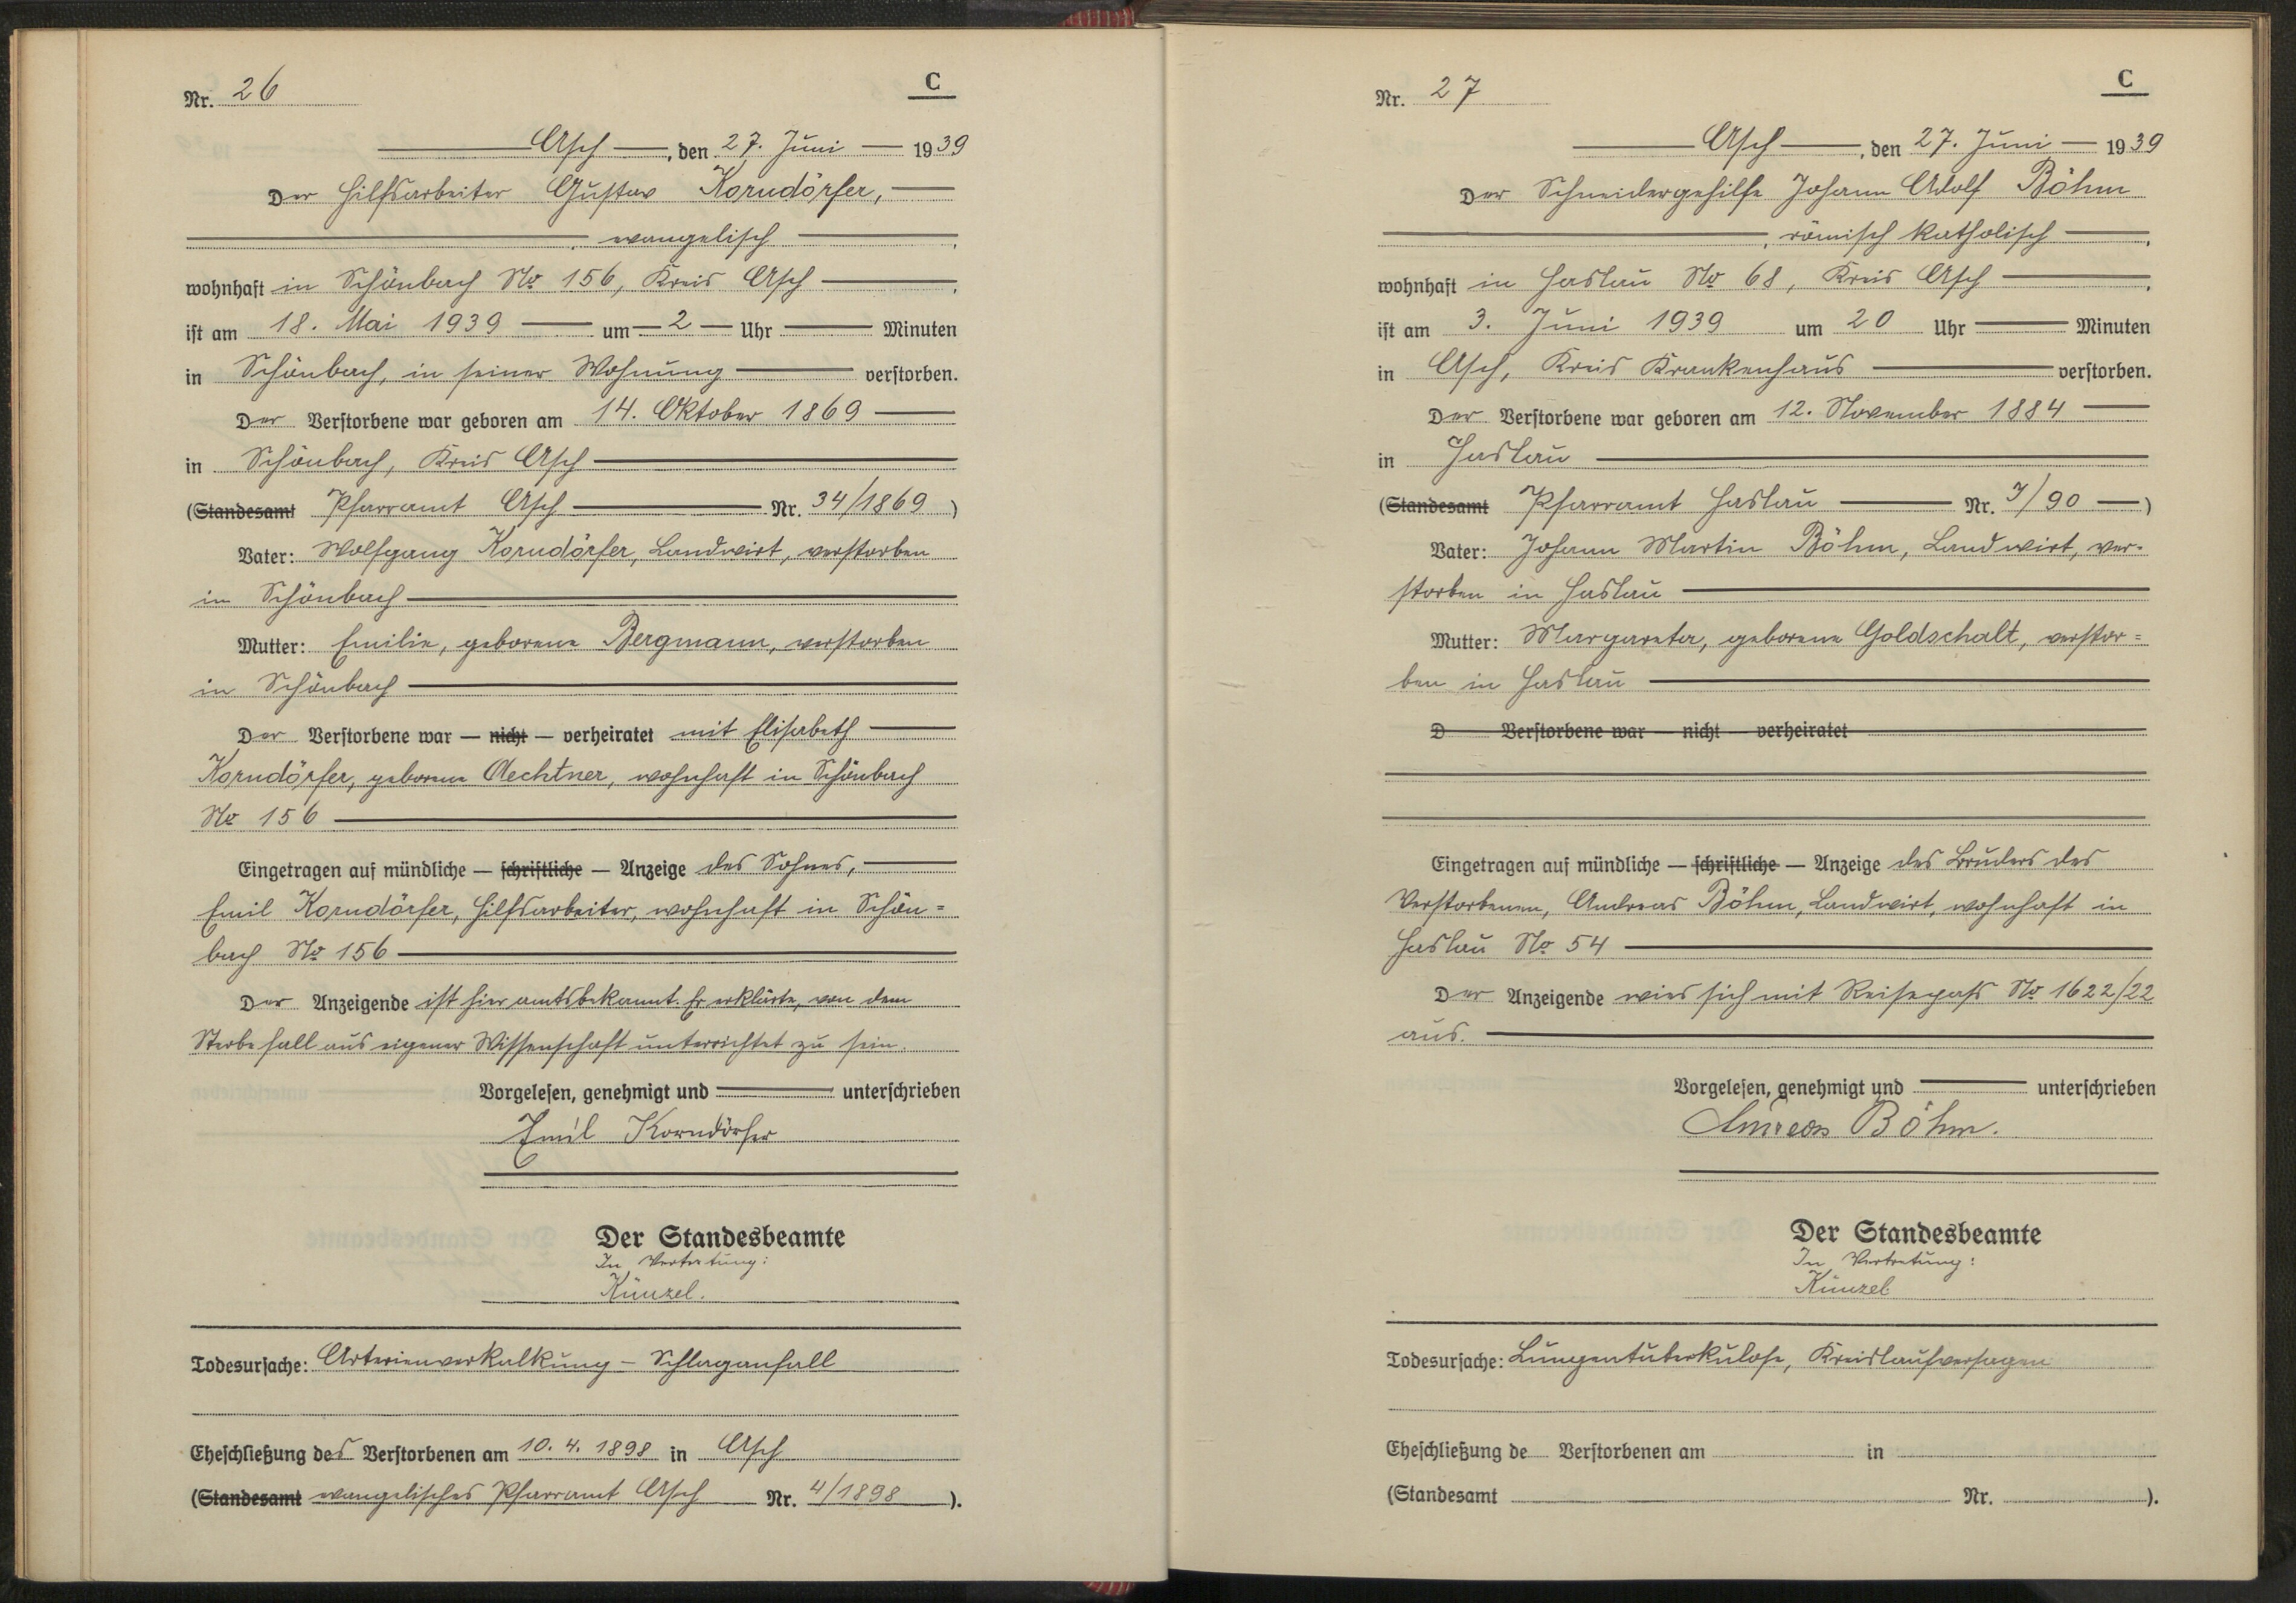 Nr. 26
C
Asch, den 27. Juni 1939
Der Hilfsarbeiter Gustav Korndörfer,
, evangelisch,
wohnhaft in Schönbach No 156, Kreis Asch,
ist am 18. Mai 1939 um 2 Uhr Minuten
in Schönbach, in seiner Wohnung verstorben.
Der Verstorbene war geboren am 14. Oktober 1869
in Schönbach, Kreis Asch
(Standesamt Pfarramt Asch Nr. 34/1869)
Vater: Wolfgang Korndörfer, Landwirt, verstorben
in Schönbach
Mutter: Emilie, geborene Bergmann, verstorben
in Schönbach
Der Verstorbene war — nicht — verheiratet mit Elisabeth
Korndörfer, geborene Aechtner, wohnhaft in Schönbach
No 156
Eingetragen auf mündliche — schriftliche — Anzeige des Sohnes,
Emil Korndörfer, Hilfsarbeiter, wohnhaft in Schön=
bach No 156
Der Anzeigende ist hier amtsbekannt. Er erklärte, von dem
Sterbefall aus eigener Wissenschaft unterrichtet zu sein.
Vorgelesen, genehmigt und unterschrieben
Emil Korndörfer
Der Standesbeamte
In Vertretung:
Künzel.
Todesursache: Arterienverkalkung – Schlaganfall
Eheschließung des Verstorbenen am 10. 4. 1898 in Asch
(Standesamt evangelisches Pfarramt Asch Nr. 4/1898).
Nr. 27
C
Asch, den 27. Juni 1939
Der Schneidergehilfe Johann Adolf Böhm
, römisch katholisch,
wohnhaft in Haslau No 68, Kreis Asch,
ist am 3. Juni 1939 um 20 Uhr Minuten
in Asch, Kreis Krankenhaus verstorben.
Der Verstorbene war geboren am 12. November 1884
in Haslau
(Standesamt Pfarramt Haslau Nr. /90)
Vater: Johann Martin Böhm, Landwirt, ver-
storben in Haslau
Mutter: Margareta, geborene Goldschalt, verstor=
ben in Haslau
D Verstorbene war — nicht — verheiratet
Eingetragen auf mündliche — schriftliche — Anzeige des Bruders des
Verstorbenen, Andreas Böhm, Landwirt, wohnhaft in
Haslau No 54
Der Anzeigende wies sich mit Reisepass No 1622/22
aus.
Vorgelesen, genehmigt und unterschrieben
Andreas Böhm.
Der Standesbeamte
In Vertretung:
Künzel
Todesursache: Lungentuberkulose, Kreislaufversagen
Eheschließung de Verstorbenen am in
(Standesamt Nr. ).